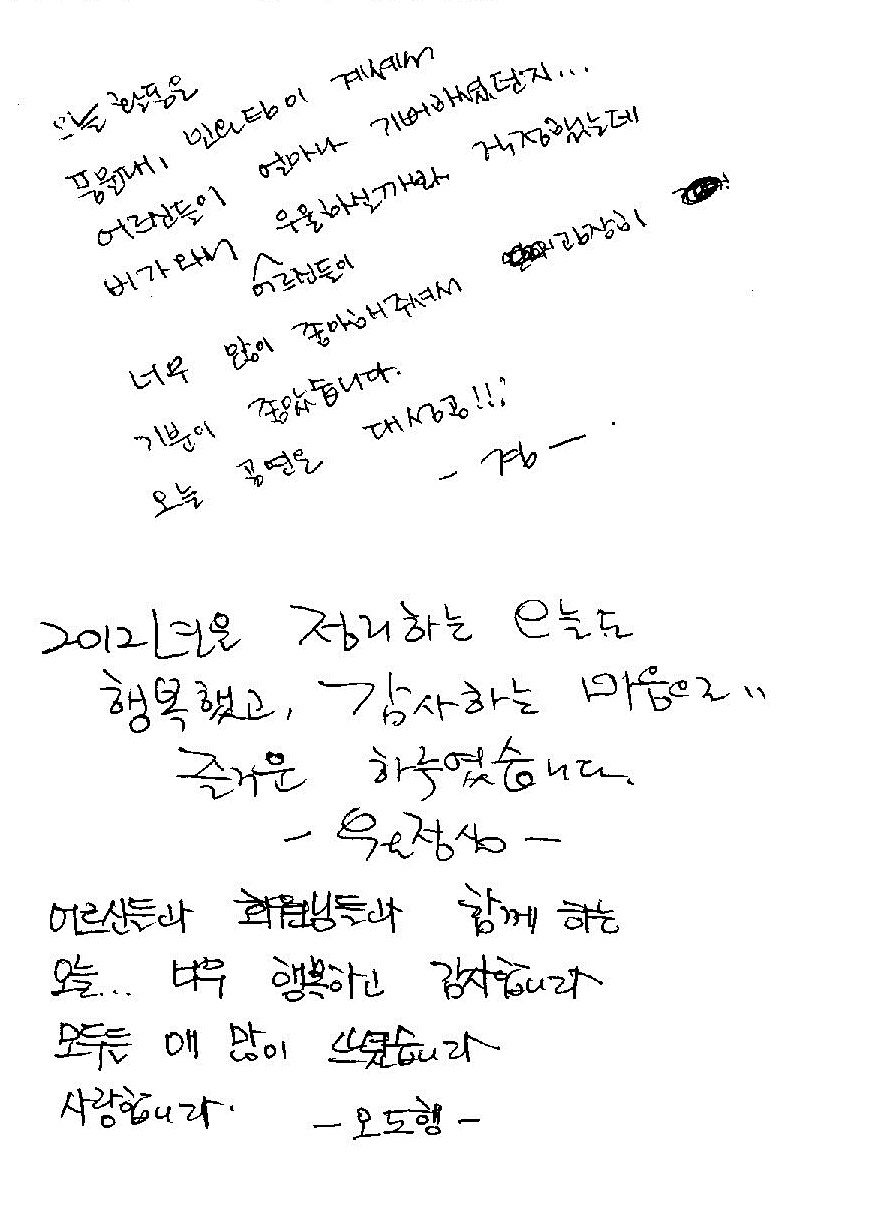 오늘 활동은
풍물패, 민요팀이 계셔서
어르신들이 얼마나 기뻐하셨던지...
비가 와서 우울하실까봐 걱정했는데
어르신들이 굉장히
너무 많이 좋아해주셔서
기분이 좋았습니다.
오늘 공연은 대성공!!!
- 경 -
2012년을 정리하는 오늘도
행복했고, 감사하는 마음으로..
즐거운 하루였습니다.
어르신들과 회원님들과 함께 하는
오늘... 너무 행복하고 감사합니다
모두들 애 많이 쓰셨습니다
사랑합니다.
- 오도행 -